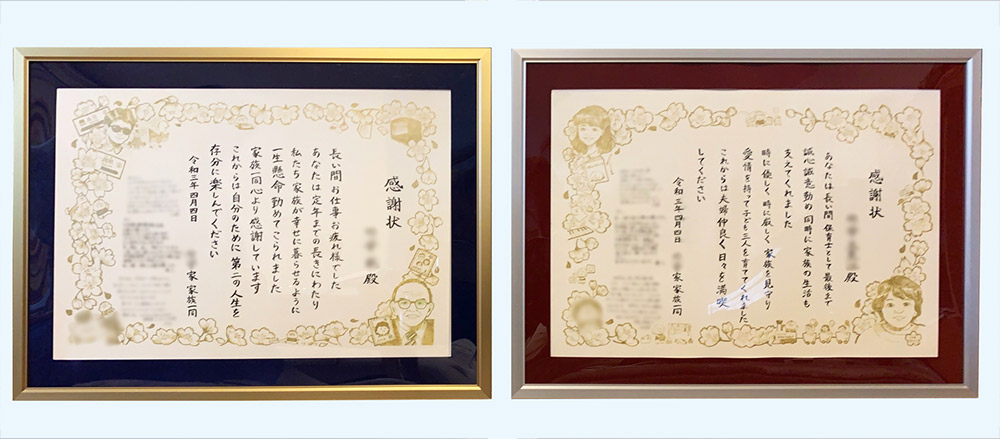 感謝状
殿
長い間お仕事お疲れ様でした
あなたは定年までの長きにわたり
私たち家族が幸せに暮らせるように
一生懸命勤めてこられました
家族一同心より感謝しています
これからは自分のために第二の人生を
存分に楽しんでください
令和三年四月四日
家 家族一同
感謝状
殿
あなたは長い間保育士として最後まで
誠心誠意勤め同時に家族の生活も
支えてくれました
時に優しく、時に厳しく家族を見守り
愛情を持って子ども三人を育ててくれました
これからは夫婦仲良く日々を満喫
してください
令和三年四月四日
家 家族一同